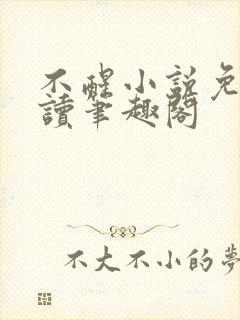 不醒小説免
讀筆趣閣
不大不小的夢